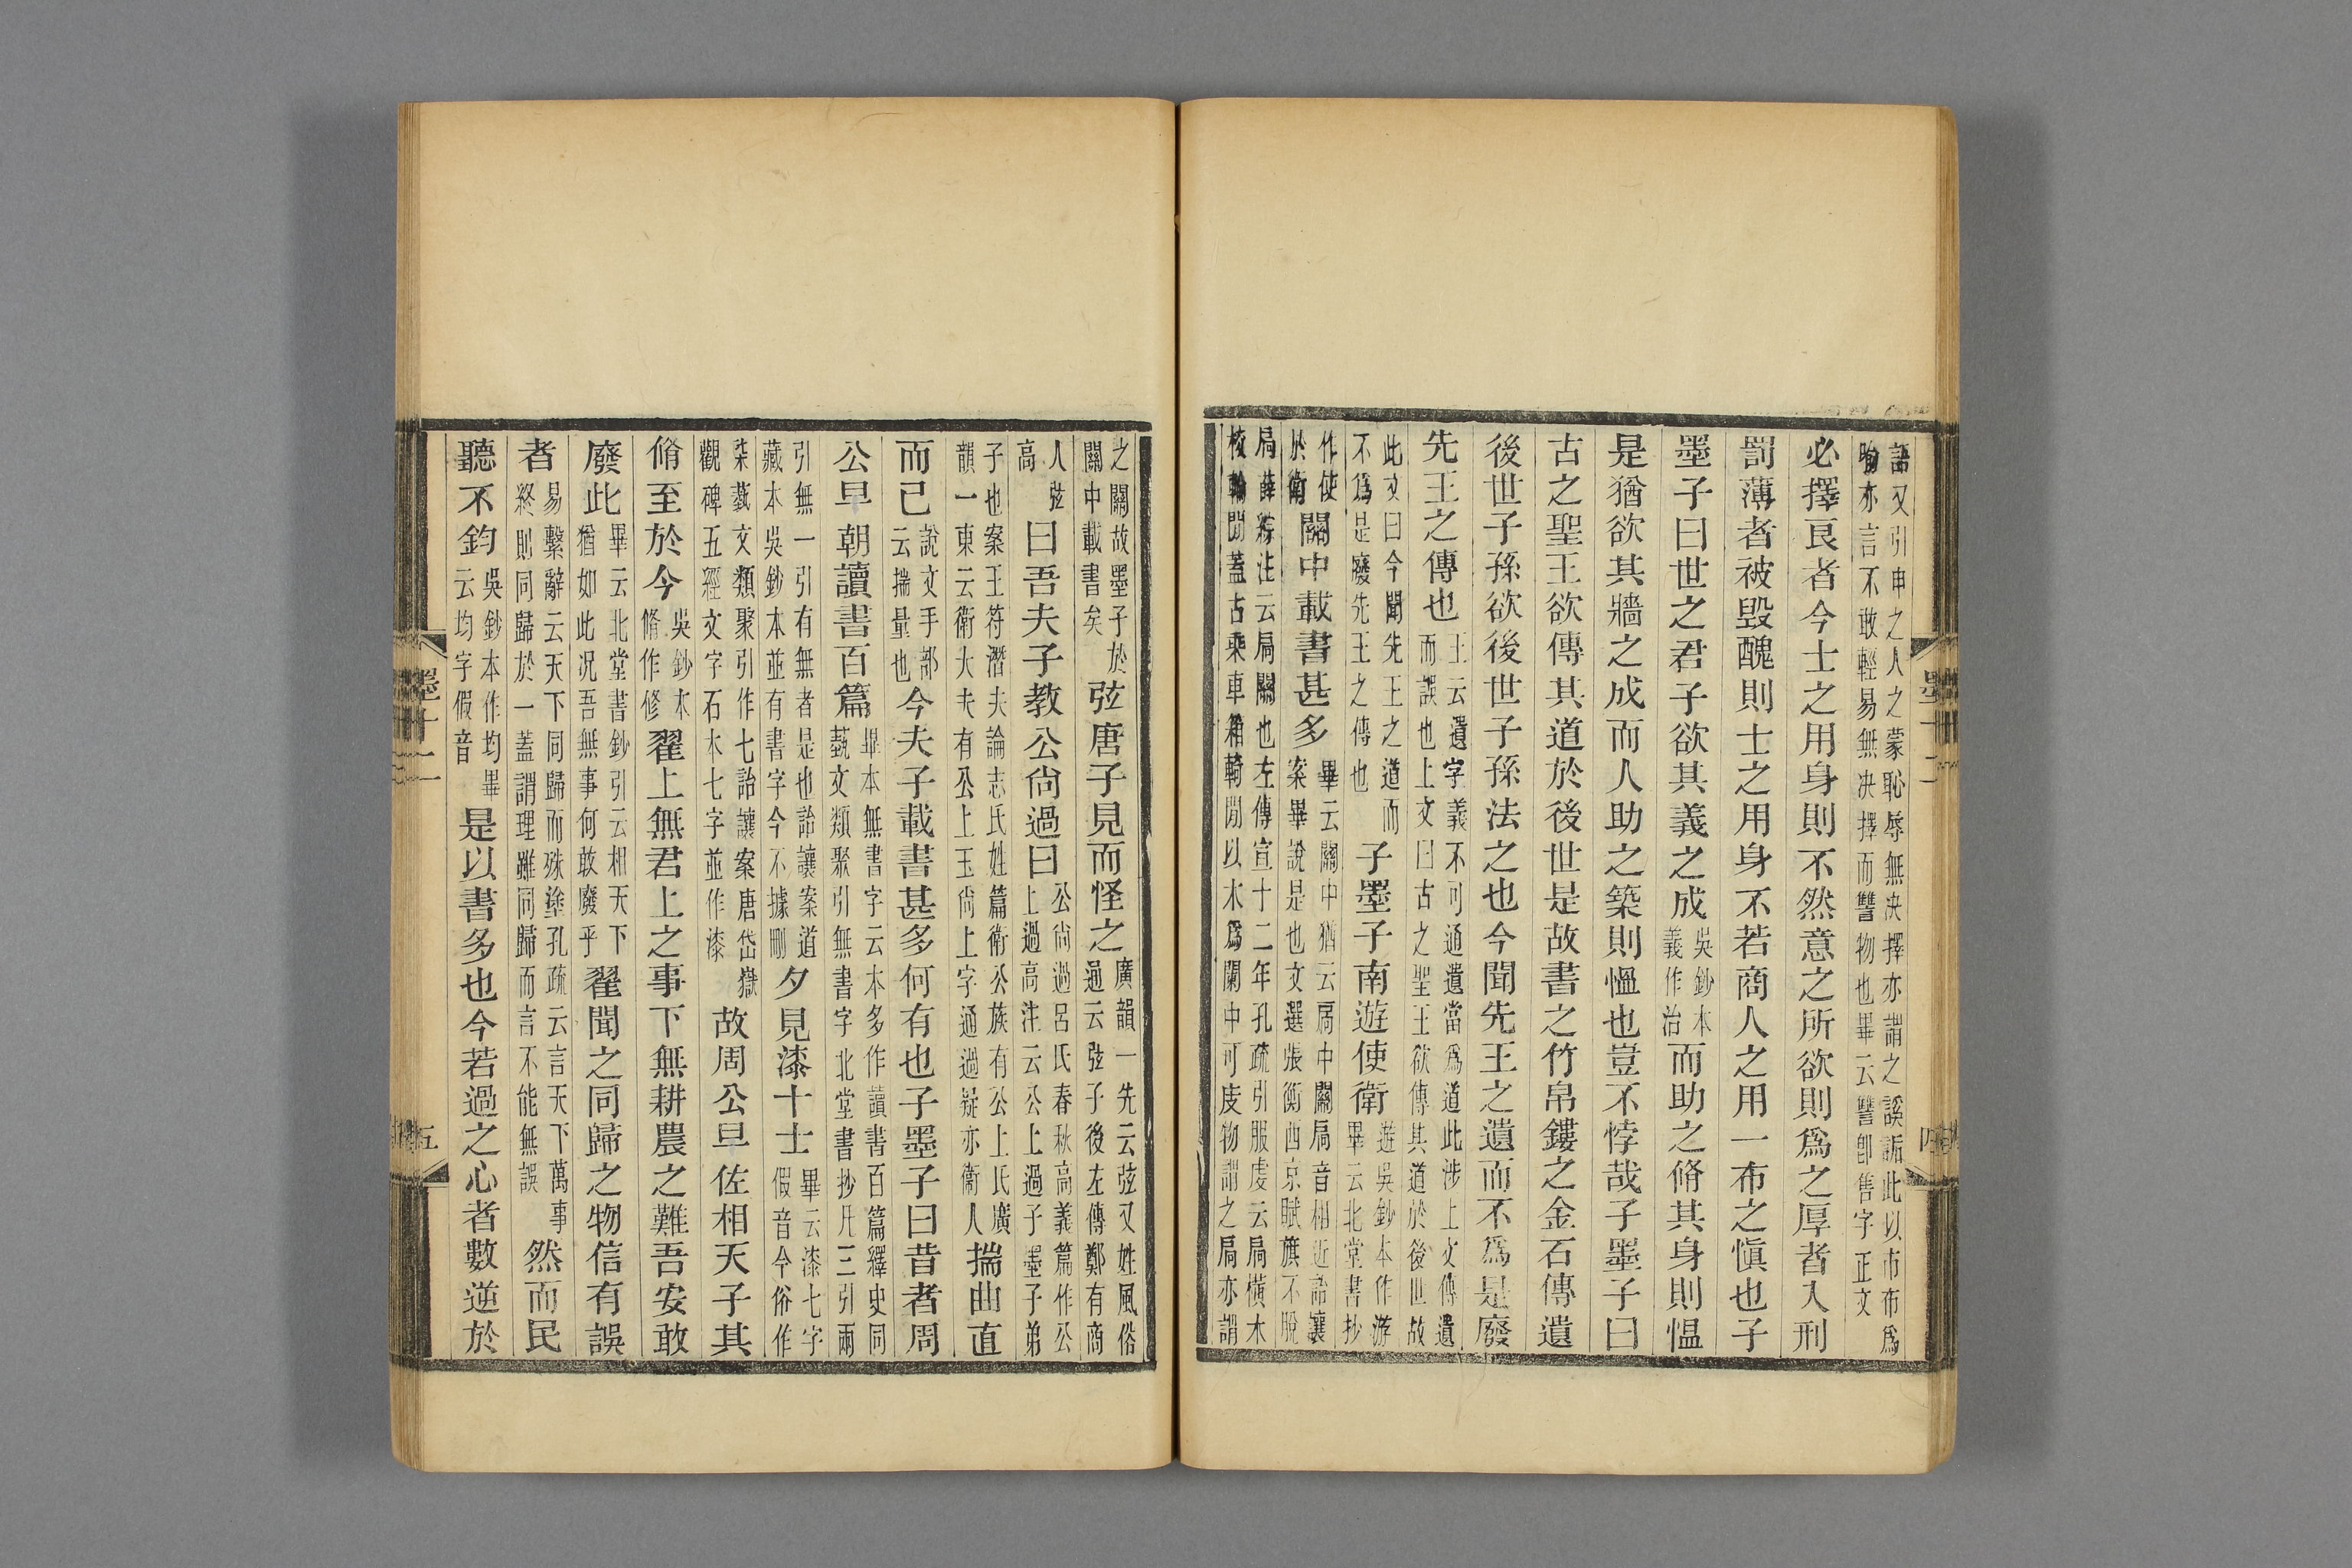 語又引申之人之蒙恥辱無決擇亦謂之謑詬此以市布爲
喻亦言不敢輕易無決擇而讐物也畢云讐卽售字正文
必擇良者今士之用身則不然意之所欲則爲之厚者入刑
罰薄者被毀醜則士之用身不若商人之用一布之愼也子
墨子曰世之君子欲其義之成吳鈔本義作治而助之脩其身則慍
是猶欲其牆之成而人助之築則慍也豈不悖哉子墨子曰
古之聖王欲傳其道於後世是故書之竹帛鏤之金石傳遺
後世子孫欲後世子孫法之也今聞先王之遺而不爲是廢
先王之傳也王云遺字義不可通遺當爲道此涉上文傳遺而誤也上文曰古之聖王欲傳其道於後世故
此文曰今聞先王之道而不爲是廢先王之傳也子墨子南遊使衛遊吳鈔本作游畢云北堂書抄
作使於衛關中載書甚多畢云關中猶云扃中關扃音相近詒讓案畢說是也文選張衡西京賦旗不脫
扃薛綜注云扃關也左傳宣十二年孔疏引服虔云扃橫木
校輪閒蓋古乘車箱輢閒以木爲闌中可庋物謂之扃亦謂
墨十二
四
之關故墨子於關中載書矣弦唐子見而怪之廣韻一先云弦又姓風俗通云弦子後左傳鄭有商
人弦高曰吾夫子教公尚過曰公尚過呂氏春秋高義篇作公上過高注云公上過子墨子弟
子也案王符潛夫論志氏姓篇衛公族有公上氏廣韻一東云衛大夫有公上玉尚上字通過疑亦衛人揣曲直
而已說文手部云揣量也今夫子載書甚多何有也子墨子曰昔者周
公旦朝讀書百篇畢本無書字云本多作讀書百篇釋史同藝文類聚引無書字北堂書抄凡三引兩
引無一引有無者是也詒讓案道藏本吳鈔本並有書字今不據刪夕見漆十士畢云漆七字假音今俗作
柒藝文類聚引作七詒讓案唐岱嶽觀碑五經文字石本七字並作漆故周公旦佐相天子其
脩至於今吳鈔本脩作修翟上無君上之事下無耕農之難吾安敢
廢此畢云北堂書鈔引云相天下猶如此况吾無事何敢廢乎翟聞之同歸之物信有誤
者易繫辭云天下同歸而殊塗孔疏云言天下萬事終則同歸於一蓋謂理雖同歸而言不能無誤然而民
聽不鈞吳鈔本作均畢云均字假音是以書多也今若過之心者數逆於
墨十二
五